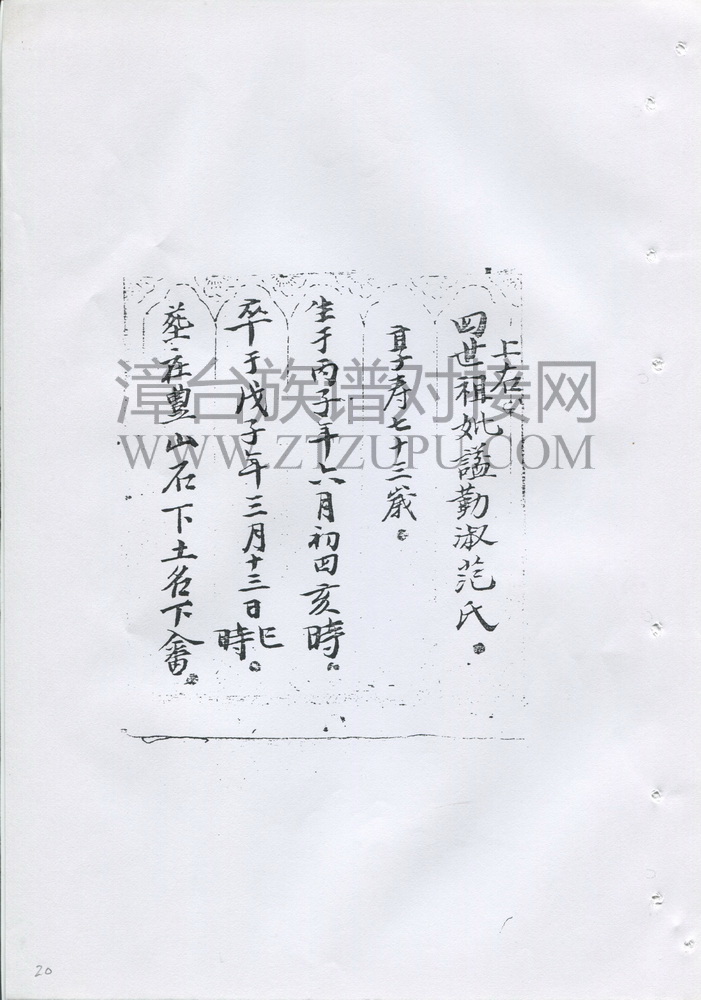 上右
四世祖妣謚勤淑范氏。
享寿七十三歲。
生于丙子年六月初四亥時。
卒于戊子年三月十三日巳時。
葬在豊山石下土名下畬。
漳台族谱对接网
WWW.ZTZUPU.COM
20